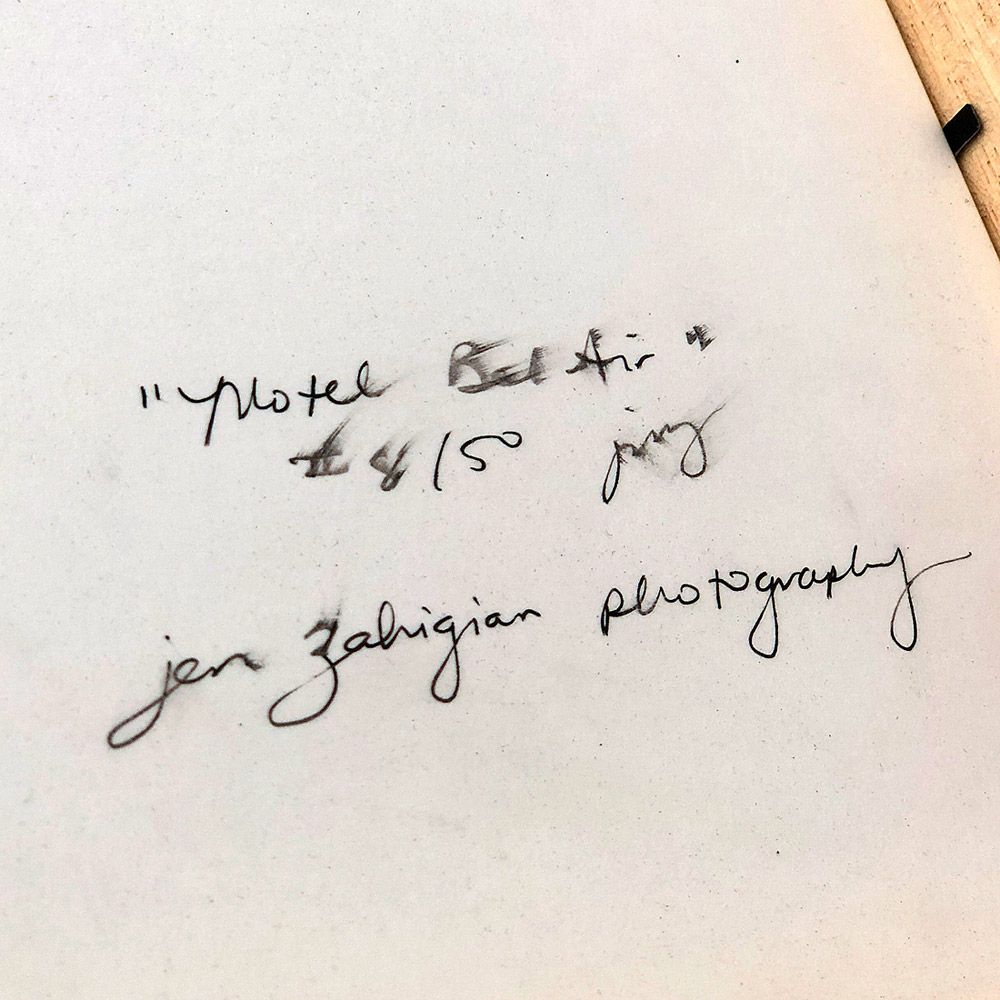 "Motel Bel Air"
# 8/50
jen zahigian photography